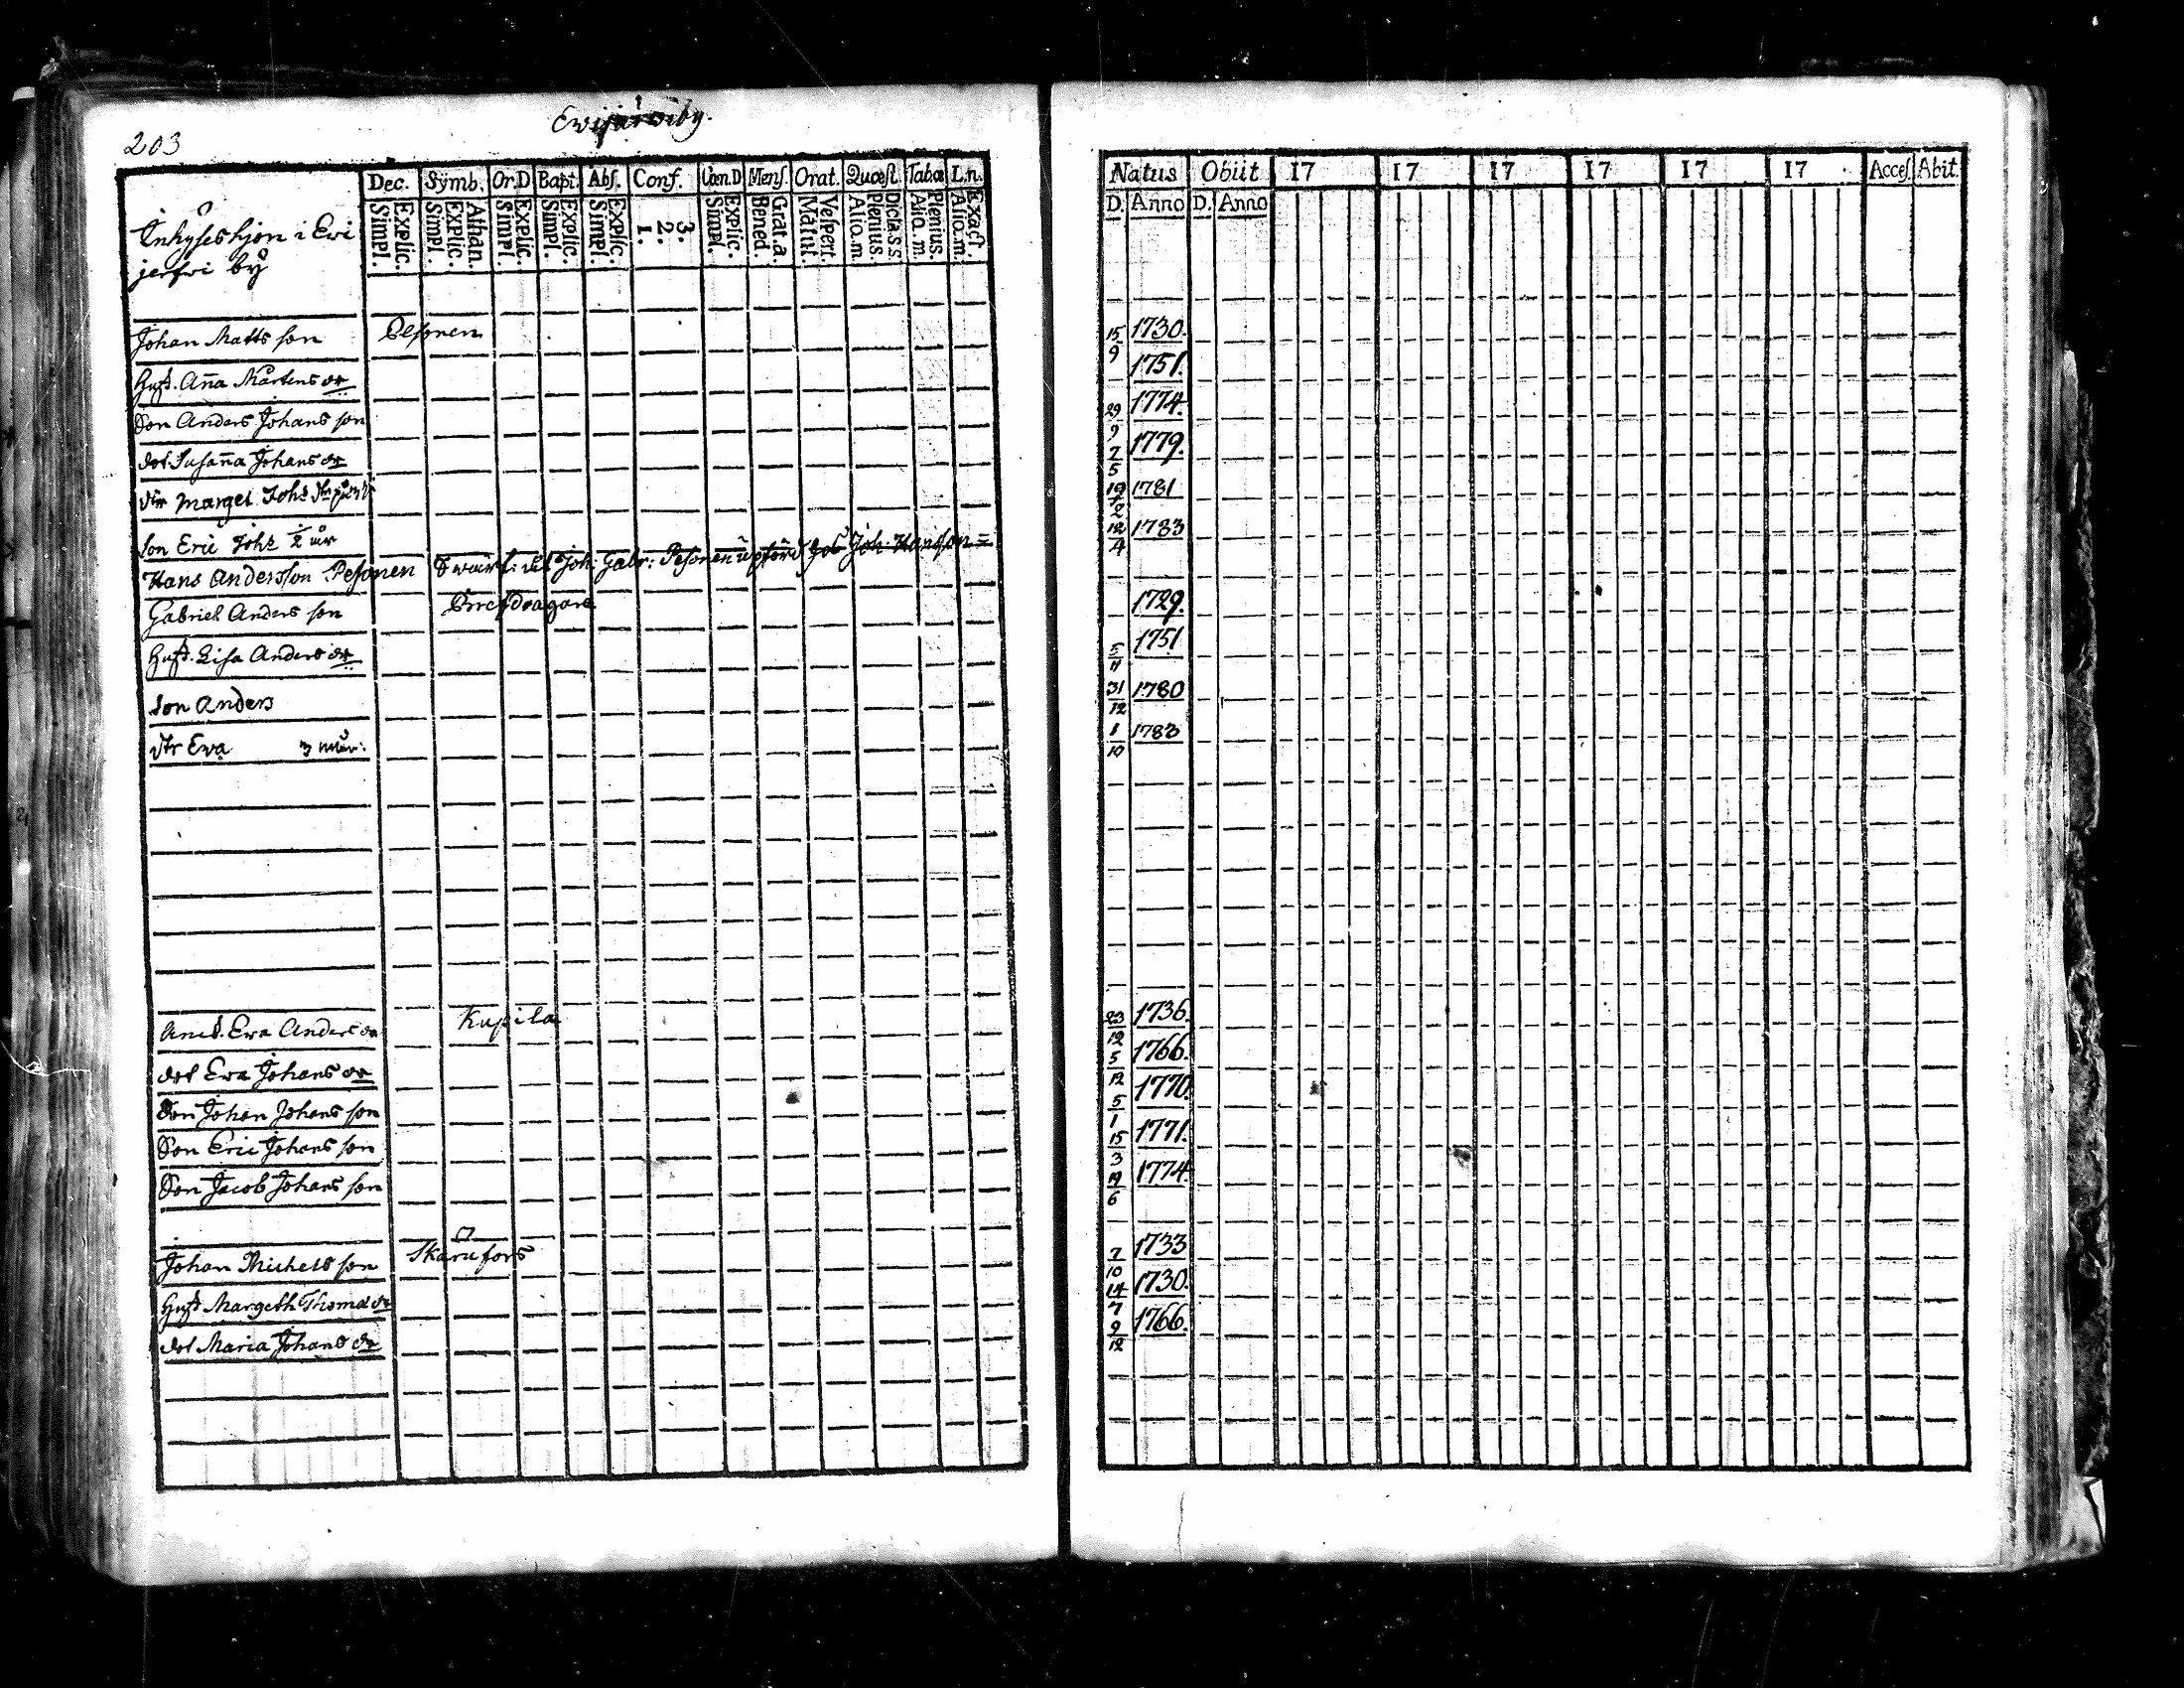 203
Ewijärwiby.
Dec. Symb. Or.D Bapt. Abs. Conf. Cœn.D Mens. Orat. Quæst. Tabæ L.n.
Simpl. Explic. Simpl. Explic. Athan. Simpl. Explic. Simpl. Explic. Simpl. Explic. 1. 2. 3. Simpl. Explic. Bened. Grat.a. Matut. Vespert. Alio.m. Plenius. Dicta.s.s. Alio.m. Plenius. Alio.m. Exact.
Natus Obiit 17 17 17 17 17 17 Acces. Abit.
D. Anno D. Anno
Inhyses hjon i Ewi
jerfwi by
Johan Matts son 15/9 1730.
Hust. Anna Mårtens dr 1751.
Son Anders Johans son 29/9 1774.
dot Susanna Johans dr 7/5 1779.
dtr Marget Johs 19/2 1781
son Eric Johs 1/2 år 12/4 1783
Hans Andersson Pesonen Joh: Gabr: Pesonen upförd Joh. Hansson =
Gabriel Anders son 1729.
Hust. Lisa Anders dr 5/11 1751
son Anders 31/12 1780
dtr Ewa 3 mån: 1/10 1783
Enk. Ewa Anders dr Kupila 23/12 1736.
dot Ewa Johans dr 5/12 1766.
Son Johan Johans son 5/1 1770.
Son Eric Johans son 15/3 1771.
Son Jacob Johans son 19/6 1774.
Johan Michels son Skarufors 7/10 1733
Hust Margeth Thomæ dr 14/7 1730.
dot Maria Johans dr 9/12 1766.